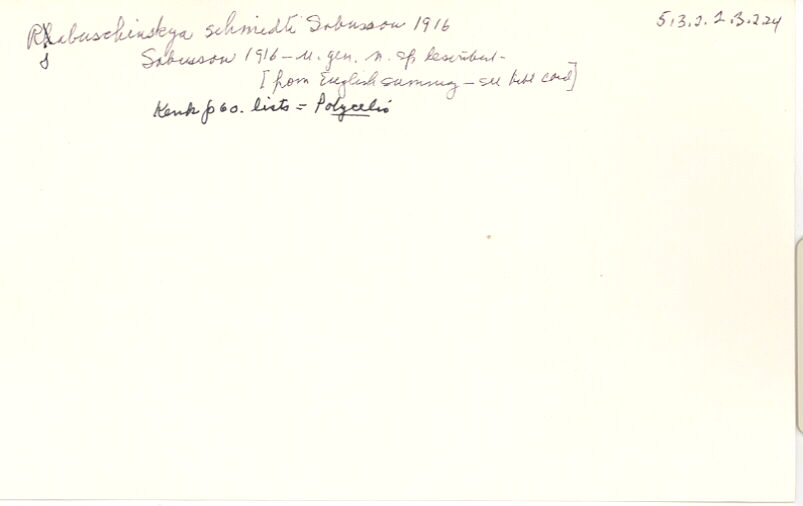 Rjabuschinskya schmidti Sabussow 1916 5.3.2.2.3.2.24
Sabussow 1916 – n. gen. n. sp. described –
[from English summary – see title card]
Kenk p 60. lists = Polycelis